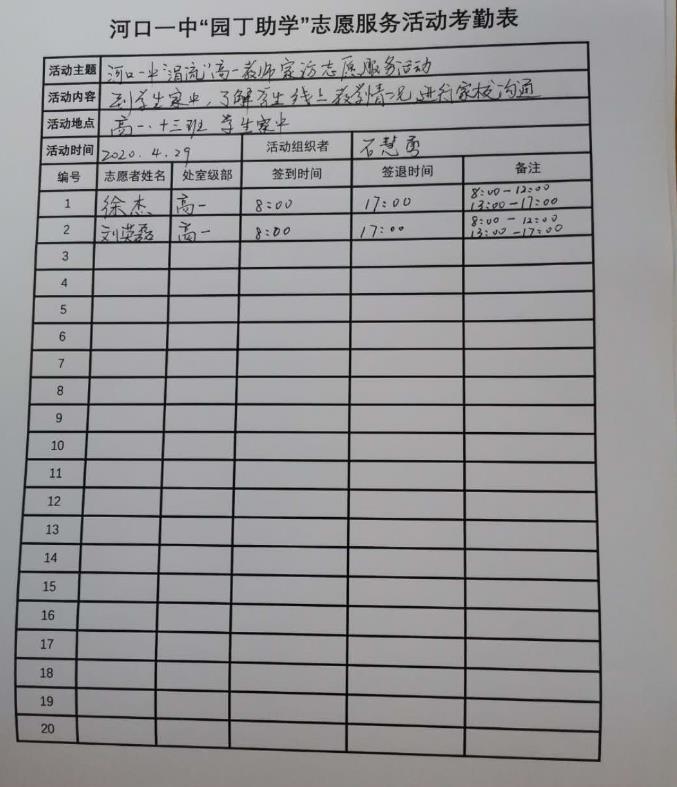 河口一中“园丁助学”志愿服务活动考勤表
活动主题 河口一中“涓流”高一教师家访志愿服务活动
活动内容 到学生家中，了解学生线上教学情况进行家校沟通
活动地点 高一、十三班 学生家中
活动时间 2020.4.29 活动组织者 石慧勇
编号 志愿者姓名 处室级部 签到时间 签退时间 备注
1 徐杰 高一 8:00 17:00 8:00-12:00
13:00-17:00
2 刘英磊 高一 8:00 17:00 8:00-12:00
13:00-17:00
3
4
5
6
7
8
9
10
11
12
13
14
15
16
17
18
19
20